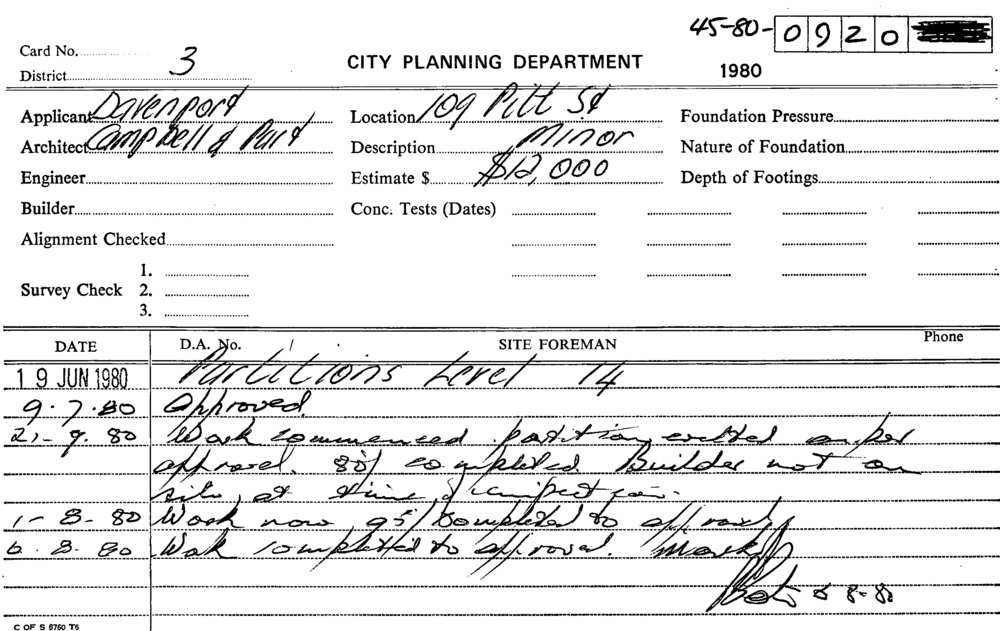 45-80-0920
Card No.
District 3
CITY PLANNING DEPARTMENT
1980
Applicant Davenport
Location 109 Pitt St
Foundation Pressure
Architect Campbell & Part
Description Minor
Nature of Foundation
Engineer
Estimate $ $12,000
Depth of Footings
Builder
Conc. Tests (Dates)
Alignment Checked
1.
Survey Check 2.
3.
DATE D.A. No. SITE FOREMAN Phone
19 JUN 1980 Partitions Level 14
9.7.80 Approved
21-7.80 Work commenced partition erected as per
approval. 80% completed. Builder not on
site, at time of inspection.
1-8-80 Work now 95% completed to approval
6.8.80 Work completed to approval.
8-80
C OF S 6760 T6